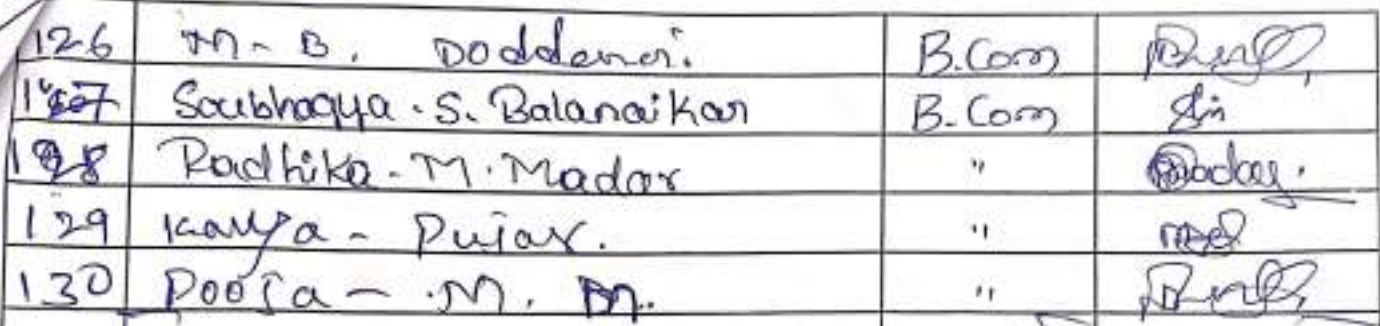 126 M. B. Doddamani. B.Com
127 Soubhagya. S. Balanaikar B.Com
128 Radhika. M. Madar "
129 Kavya - Pujar. "
130 Pooja - M. M. "